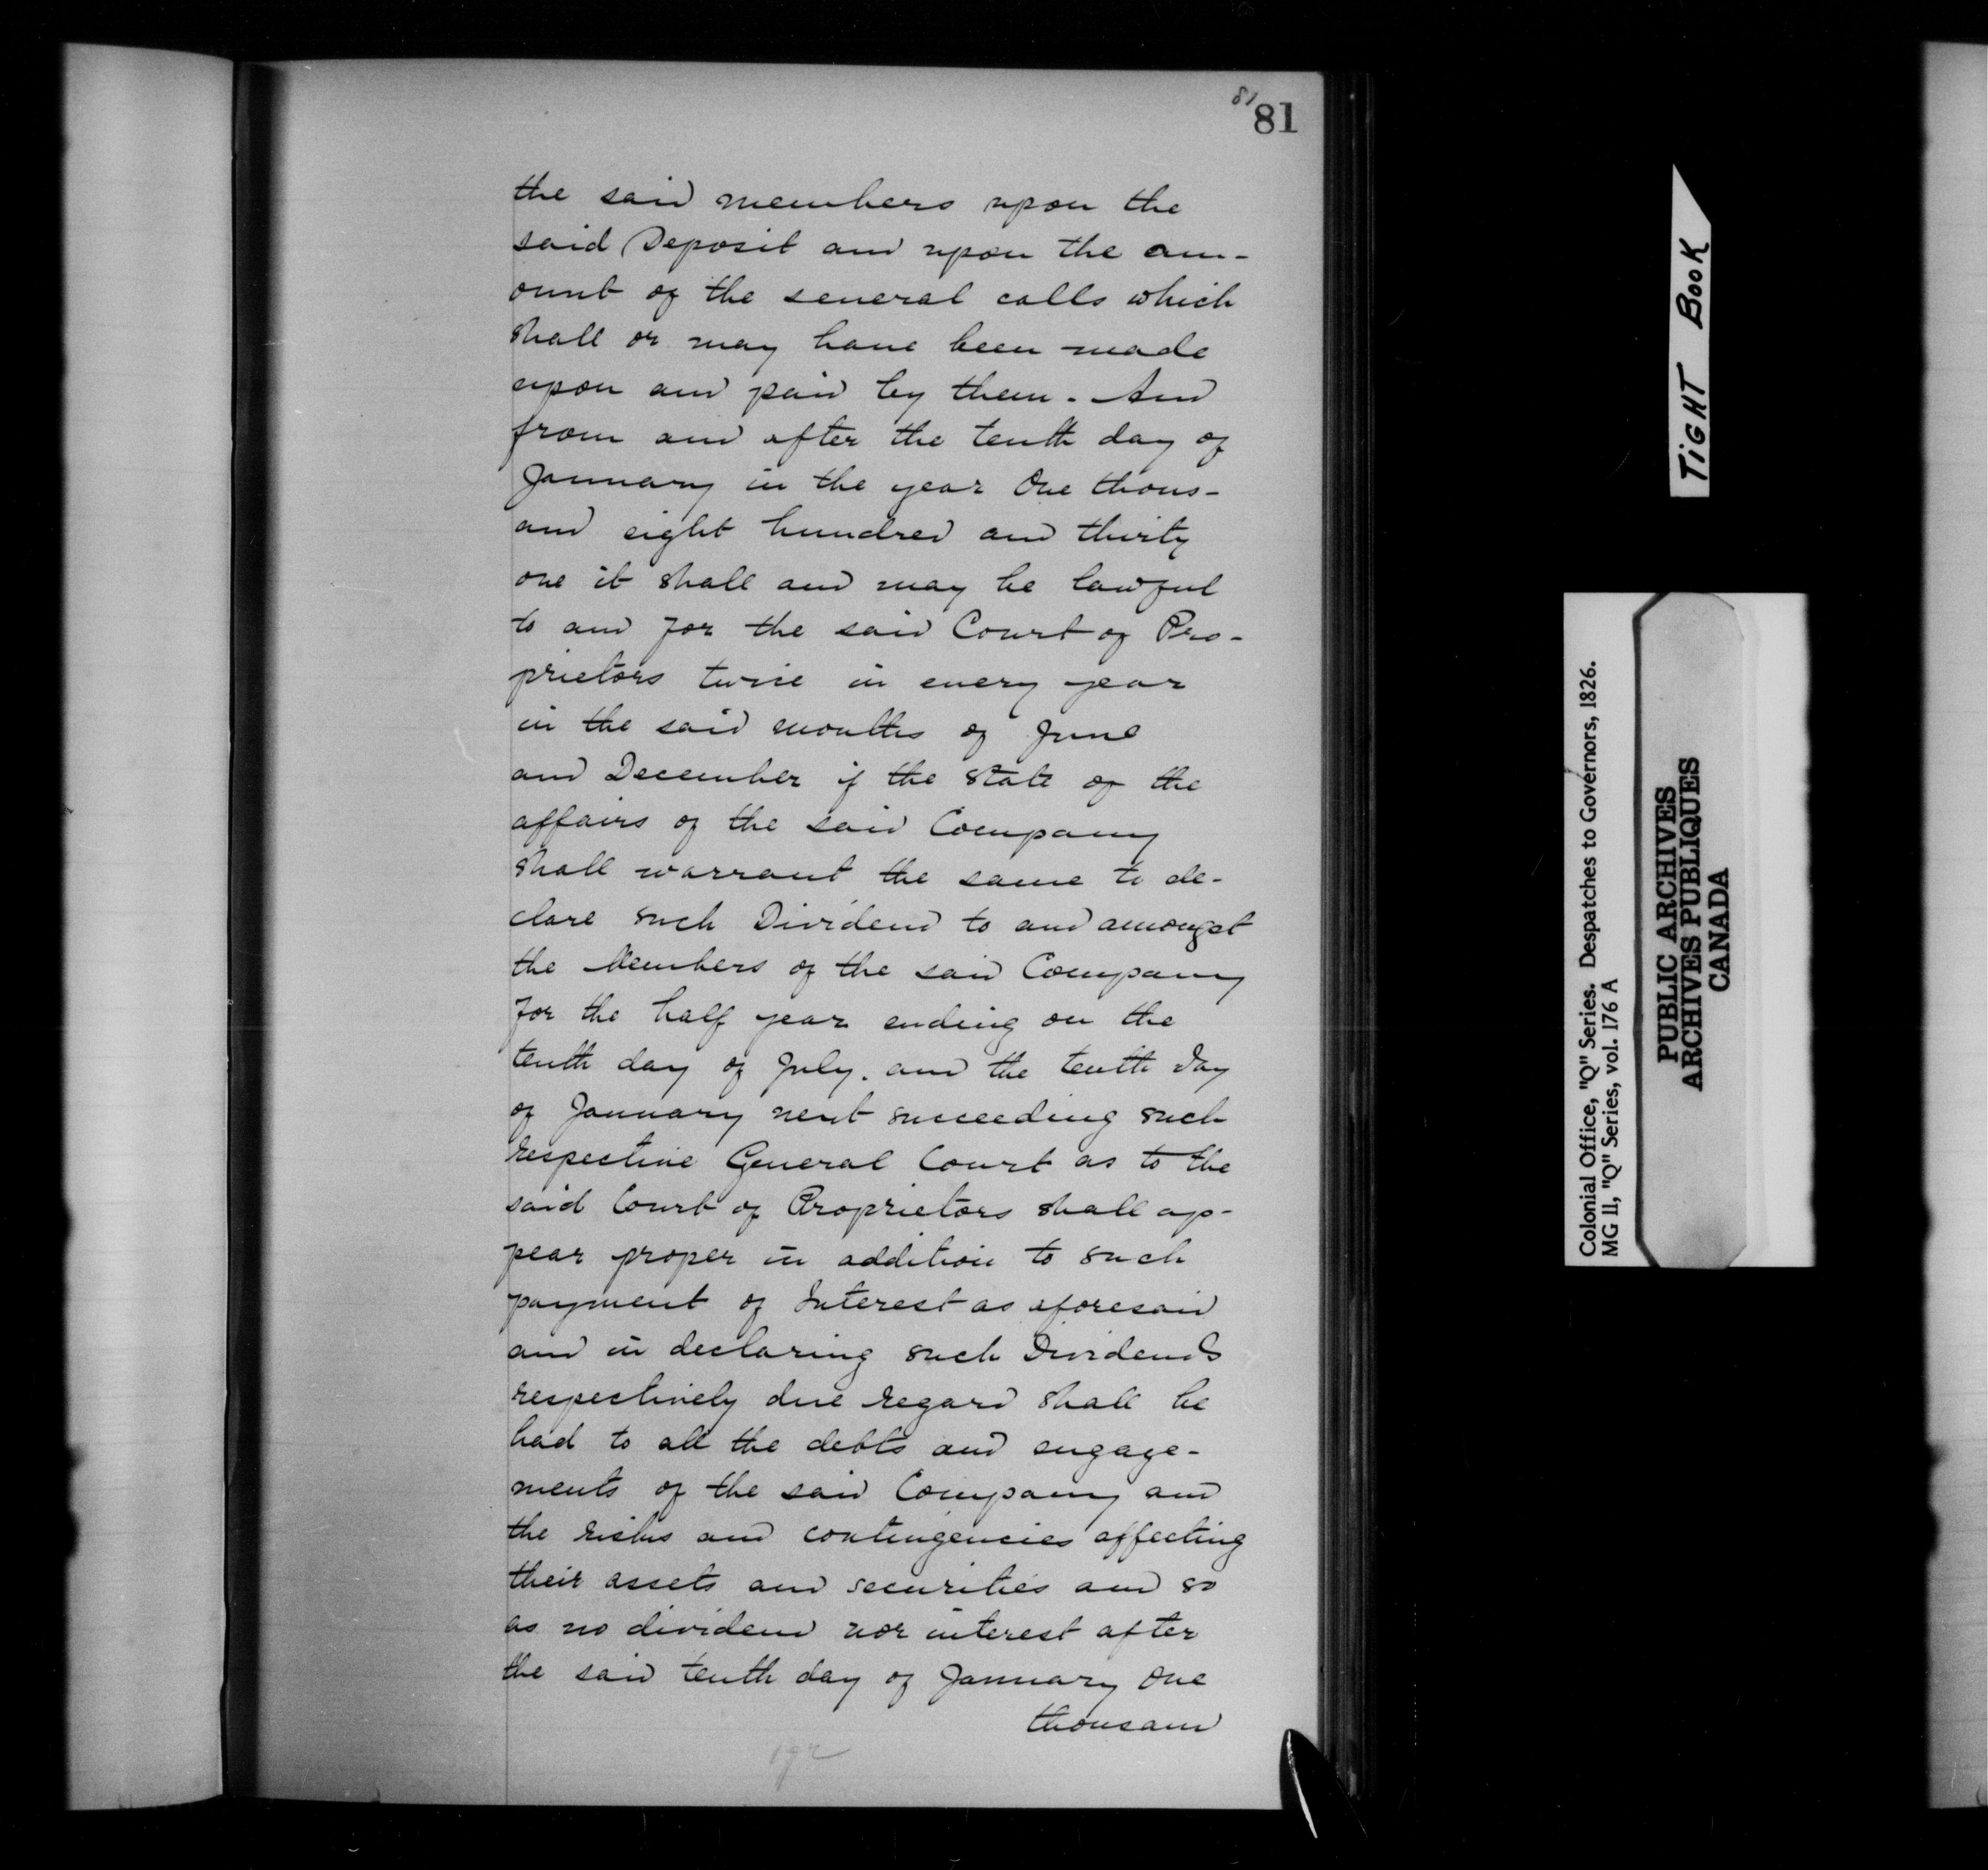 81
81
the said members upon the
said Deposit and upon the am-
ount of the several calls which
shall or may have been made
upon and paid by them. And
from and after the tenth day of
January in the year One thous-
and eight hundred and thirty
one it shall and may be lawful
to and for the said Court of Pro-
prietors twice in every year
in the said months of June
and December if the state of the
affairs of the said Company
shall warrant the same to de-
clare such Dividend to and amongst
the Members of the said Company
for the half year ending on the
tenth day of July. and the tenth day
of January next succeeding such
respective General Court as to the
said Court of Proprietors shall ap-
pear proper in addition to such
payment of Interest as aforesaid
and in declaring such Dividends
respectively due regard shall be
had to all the debts and engage-
ments of the said Company and
the risks and contingencies affecting
their assets and securities and so
as no dividend nor interest after
the said tenth day of January One
thousand
TIGHT BOOK
Colonial Office, "Q" Series. Despatches to Governors, 1826.
MG 11, "Q" Series, vol. 176 A
PUBLIC ARCHIVES
ARCHIVES PUBLIQUES
CANADA